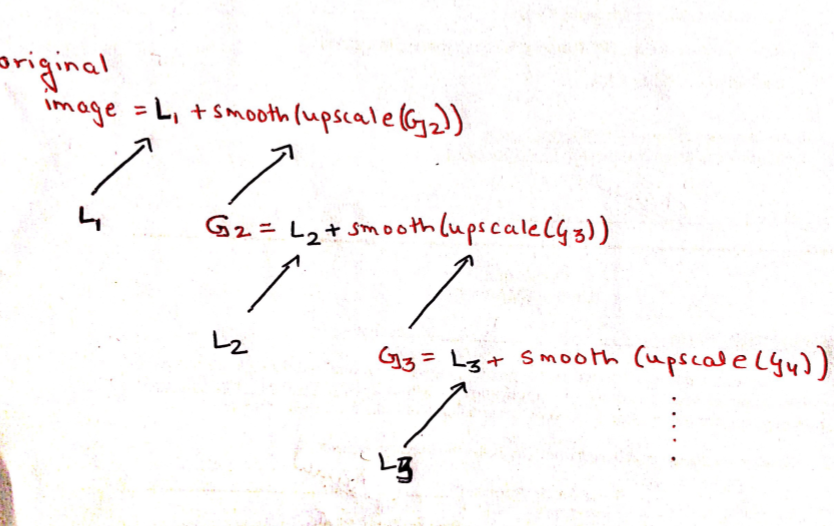 original
image = L1 + smooth(upscale(G2))
L1
G2 = L2 + smooth(upscale(G3))
L2
G3 = L3 + smooth (upscale(G4))
L3